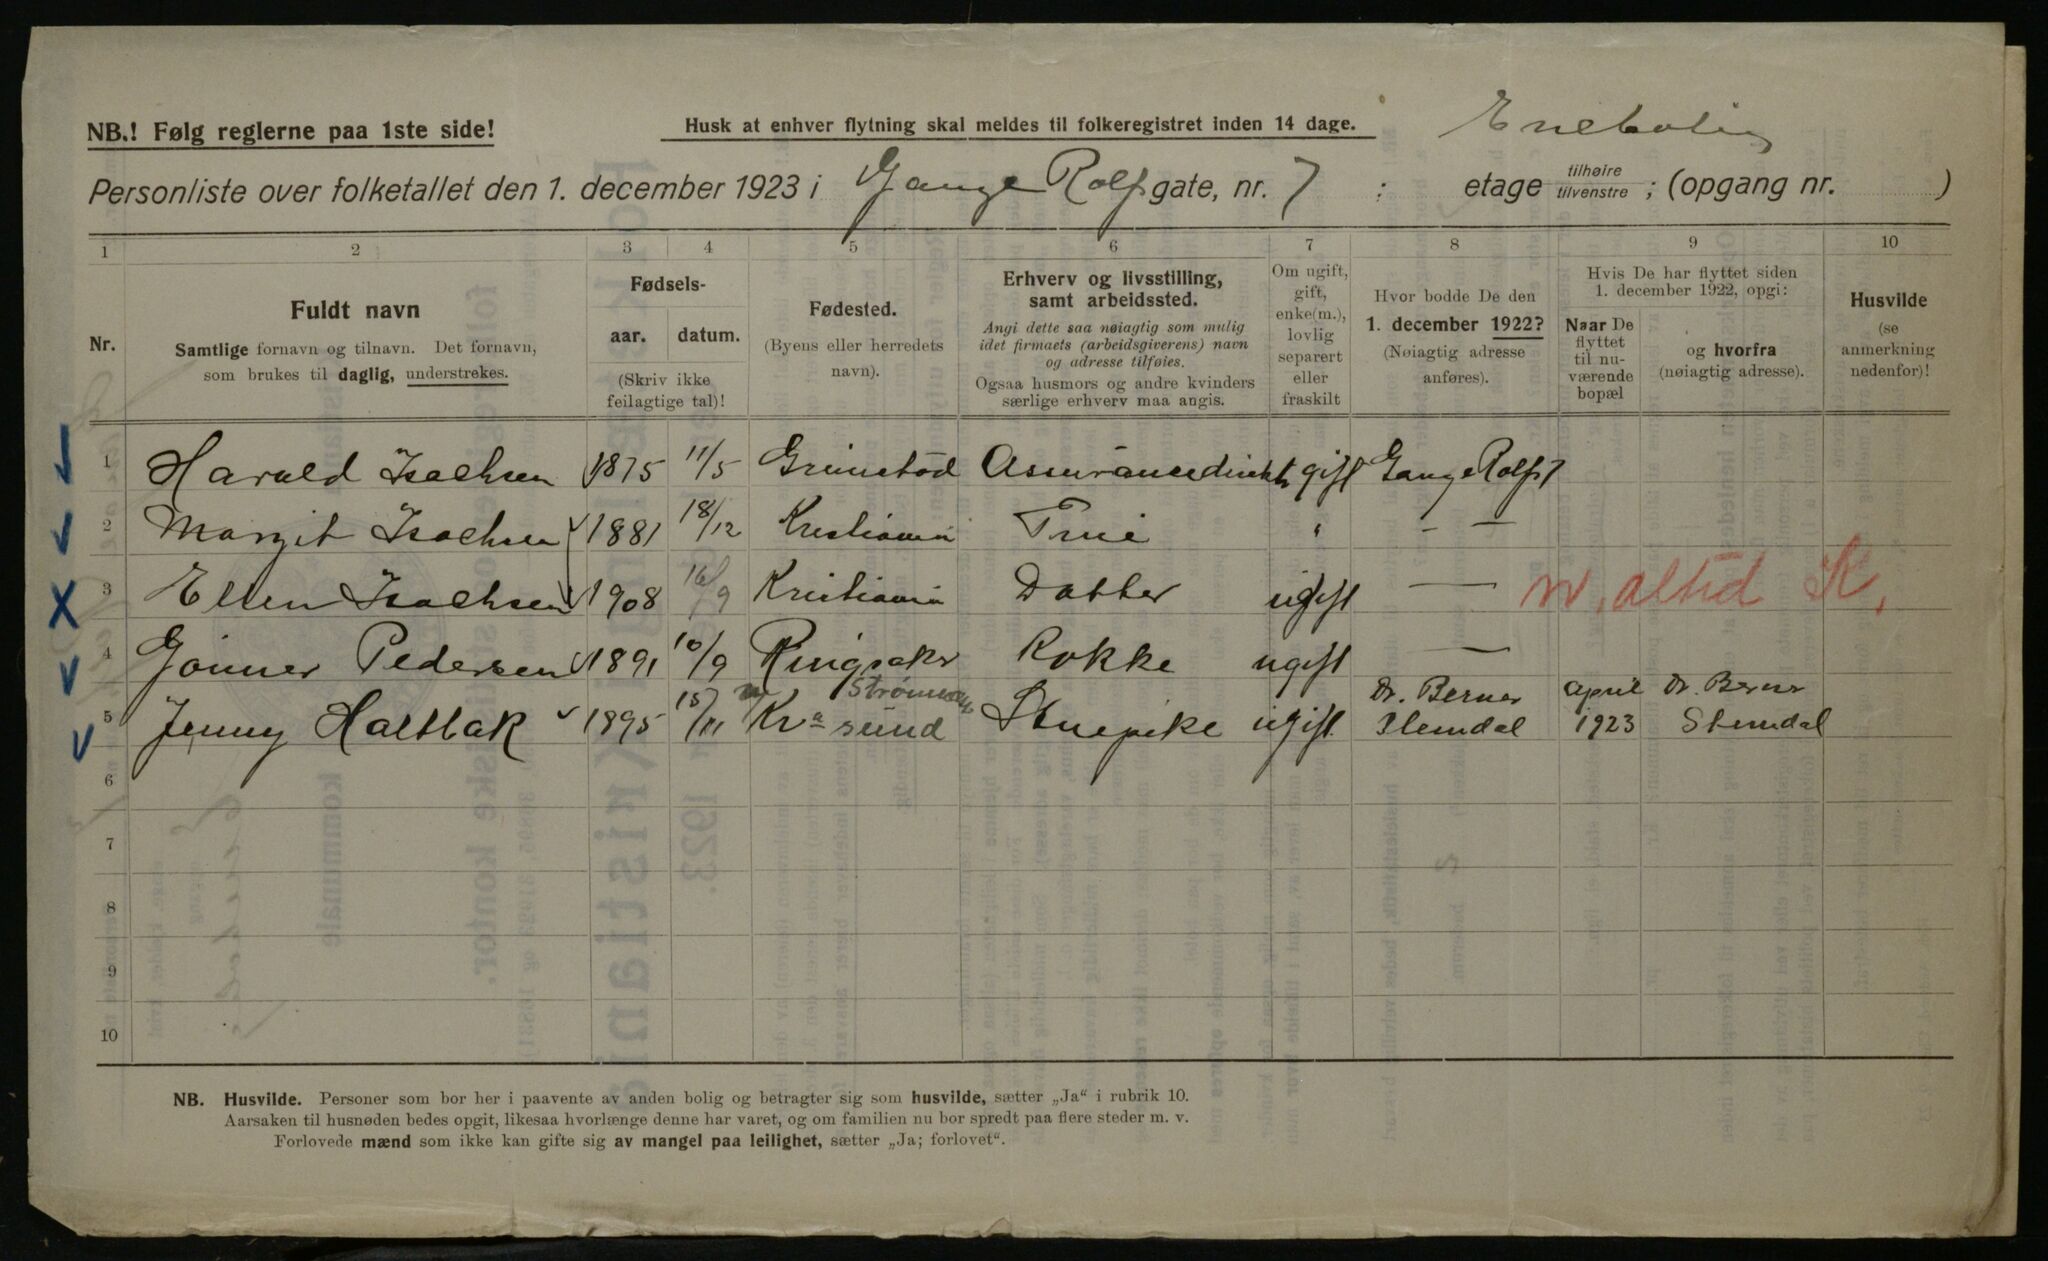 NB.! Følg reglerne paa 1ste side!
Husk at enhver flytning skal meldes til folkeregistret inden 14 dage.
Enebolig
Personliste over folketallet den 1. december 1923 i Gange Rolfs gate, nr. 7 : etage tilhøire tilvenstre ; (opgang nr. )
1 2 3 4 5 6 7 8 9 10
Nr.
Fuldt navn
Samtlige fornavn og tilnavn. Det fornavn, som brukes til daglig, understrekes.
Fødsels-
aar. datum.
(Skriv ikke feilagtige tal)!
Fødested.
(Byens eller herredets navn).
Erhverv og livsstilling, samt arbeidssted.
Angi dette saa nøiagtig som mulig idet firmaets (arbeidsgiverens) navn og adresse tilføies.
Ogsaa husmors og andre kvinders særlige erhverv maa angis.
Om ugift, gift, enke(m.), lovlig separert eller fraskilt
Hvor bodde De den 1. december 1922?
(Nøiagtig adresse anføres).
Hvis De har flyttet siden 1. december 1922, opgi:
Naar De flyttet til nuværende bopæl
og hvorfra (nøiagtig adresse).
Husvilde
(se anmerkning nedenfor)!
1 Harald Isachsen 1875 11/5 Grimstad Assurancedirektr gift Gange Rolfs 7
2 Margit Isachsen 1881 18/12 Kristiania Frue " — —
3 Ellen Isachsen 1908 16/9 Kristiania Datter ugift — n, altid K,
4 Gønner Pedersen 1891 10/9 Ringsaker Kokke ugift —
5 Jenny Haltbak 1895 15/11 Kra sund Stuepike ugift Dr. Berner Slemdal april 1923 Dr. Berner Slemdal
6
7
8
9
10
NB. Husvilde. Personer som bor her i paavente av anden bolig og betragter sig som husvilde, sætter „Ja“ i rubrik 10.
Aarsaken til husnøden bedes opgit, likesaa hvorlænge denne har varet, og om familien nu bor spredt paa flere steder m. v.
Forlovede mænd som ikke kan gifte sig av mangel paa leilighet, sætter „Ja; forlovet“.